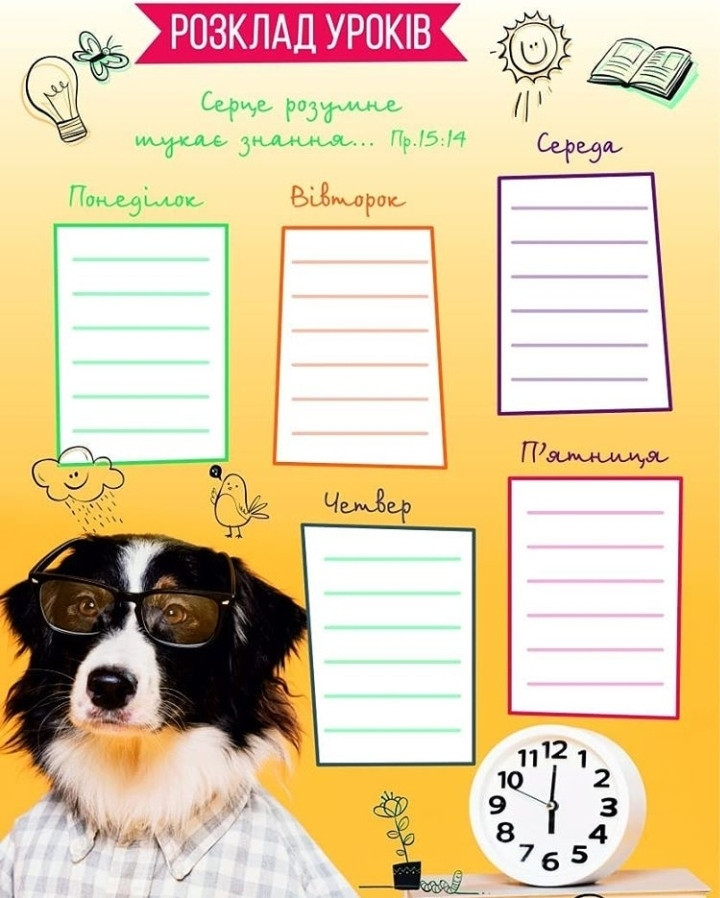 РОЗКЛАД УРОКІВ
Серце розумне
шукає знання... Пр.15:14
Понеділок
Вівторок
Середа
Четвер
П'ятниця
11 12 1
10 2
9 3
8 4
7 6 5